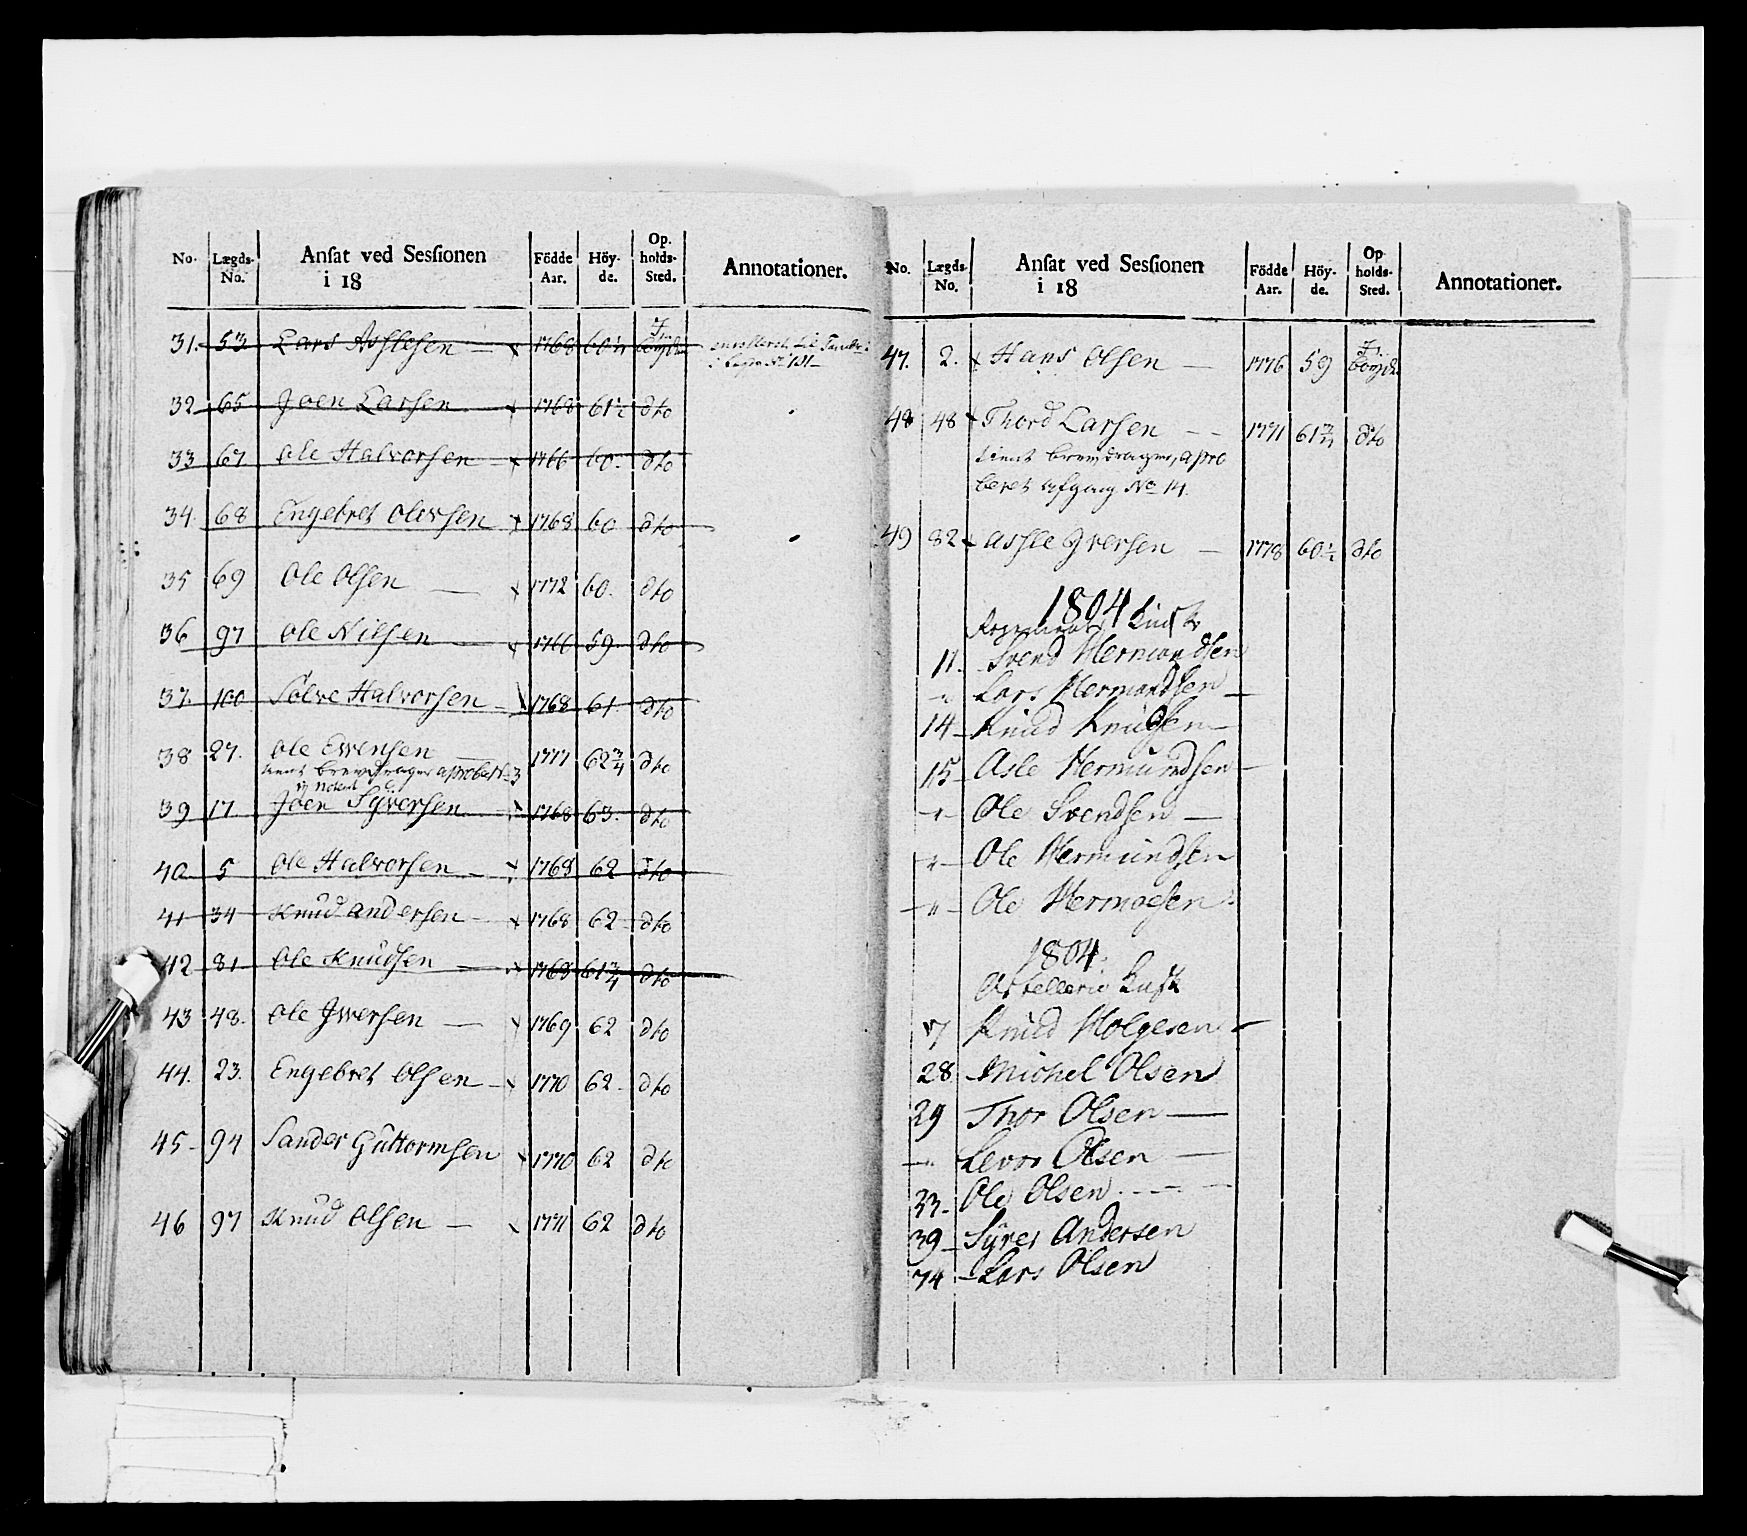 No. Lægds-No. Ansat ved Sessionen i 18 Födde Aar. Höy-de. Op-holds-Sted. Annotationer.
31. 53 Lars Aslesen — x 1768 60 1/4 I Bøyden
32 65 Joen Larsen x 1768 61 1/2 dto
33 67 Ole Halvorsen x 1766 60. dto
34. 68 Engebret Olevsen x 1768 60 dto
35 69 Ole Olsen — x 1772 60. dto
36 97 Ole Nilsen — x 1766 59. dto
37. 100 Sølve Halvorsen — x 1768 61. dto
38 27. Ole Evensen 1777 62 3/4 dto
39 17 Joen Syversen 1768 63. dto
40 5 Ole Halvorsen — x 1768 62 dto
41 34 Knud Andersen — x 1768 62 dto
42 81 Ole Knudsen — x 1768 61 3/4 dto
43 48. Ole Iversen — x 1769 62 dto
44. 23. Engebret Olsen — x 1770 62 dto
45 94 Sander Guttormsen x 1770 62 dto
46 97 Knud Olsen — x 1771 62 dto
No. Lægds-No. Ansat ved Sessionen i 18 Födde Aar. Höy-de. Op-holds-Sted. Annotationer.
47. 2. x Hans Olsen — 1776 59 I Bøyden
48 48 x Thord Larsen — 1771 61 3/4 dto
tient brevdrager, apro
beret afgang No 14.
49 82 x Asle Iversen — 1778 60 1/2 dto
1804
Regiments Kusk
11. Svend Hermandsen
" Lars Hermandsen —
14 — Knud Knudsen —
15 — Asle Hermundsen —
" Ole Svendsen —
" Ole Hermundsen
" Ole Hermoesen
1804.
Artellerie Kusk
7 Knud Holgesen —
28 Michel Olsen
29 Thor Olsen —
" Levor Olsen —
33. Ole Olsen —
39 — Syver Andersen
74 — Lars Olsen